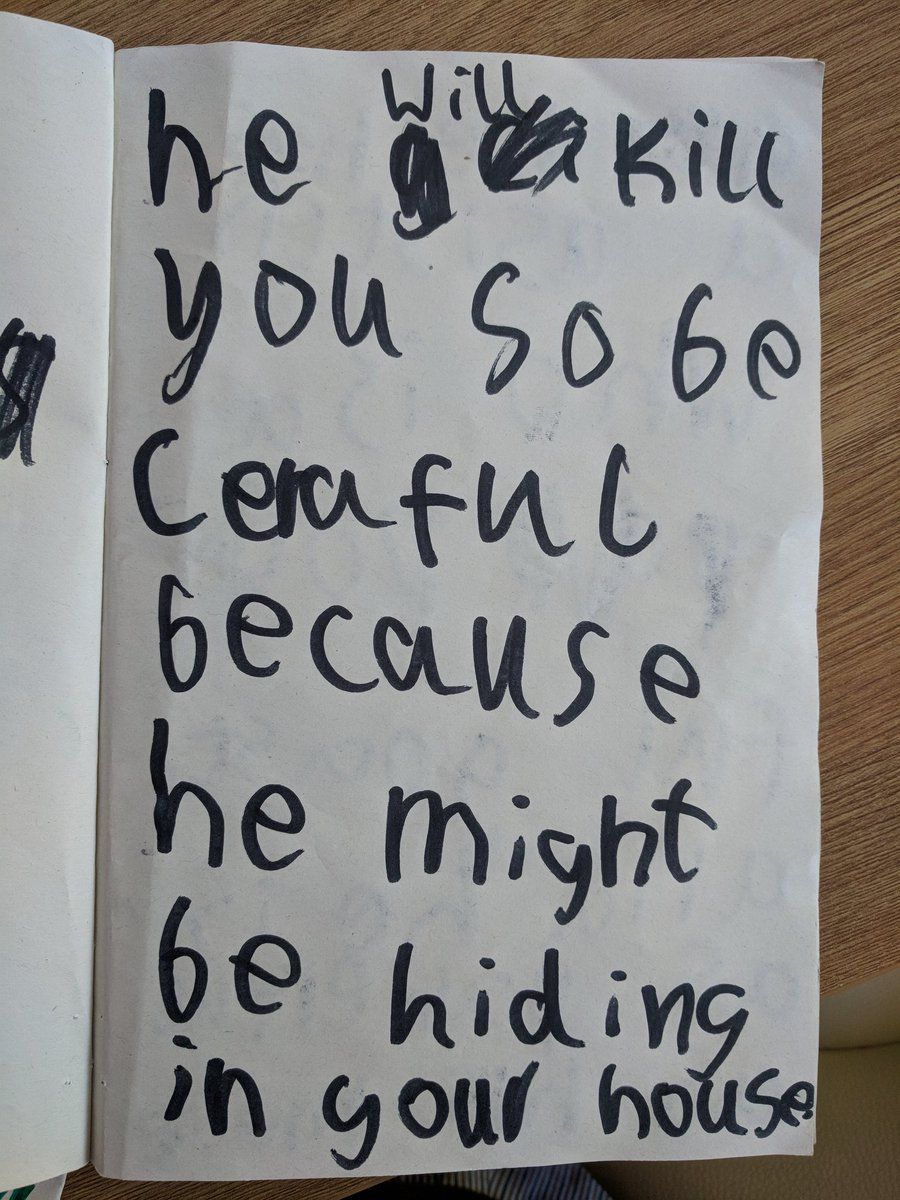 he will kill
you so be
ceraful
because
he might
be hiding
in your house